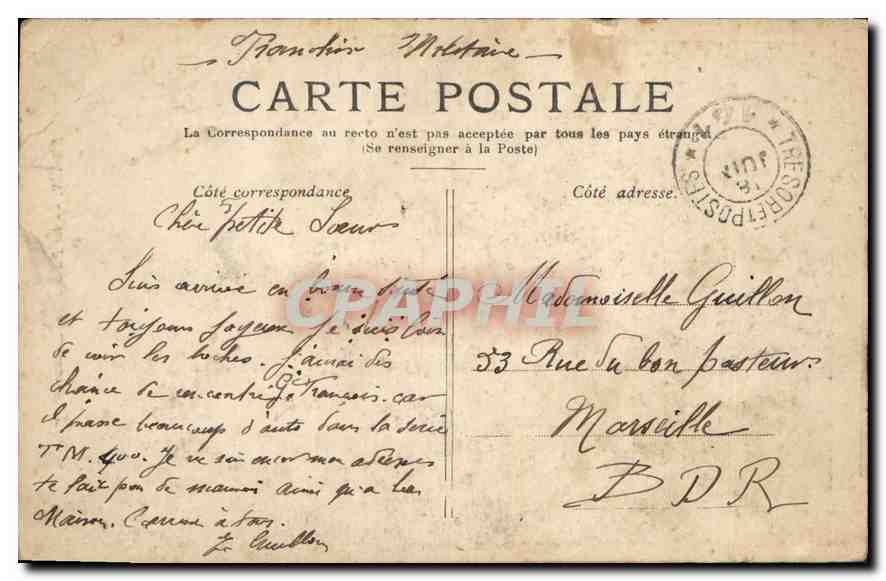 Franchise Militaire
CARTE POSTALE
La Correspondance au recto n'est pas acceptée par tous les pays étranger
(Se renseigner à la Poste)
TRESOR ET POSTES
JUIN
Côté correspondance
Côté adresse.
Chère petite Soeur
Suis arrivé en bonne santé
et toujours joyeux je suis loin
de voir les boches. J'aurai des
chance de rencontré François car
il passe beaucoup d'auto dans la série
TM. 400. Je ne sais encor mon adresse
te fait pas de mauvais ainsi qu'a la
Maison. à tous.
Guillon
Mademoiselle Guillon
53 Rue du bon pasteur
Marseille
BDR
CPAPHIL